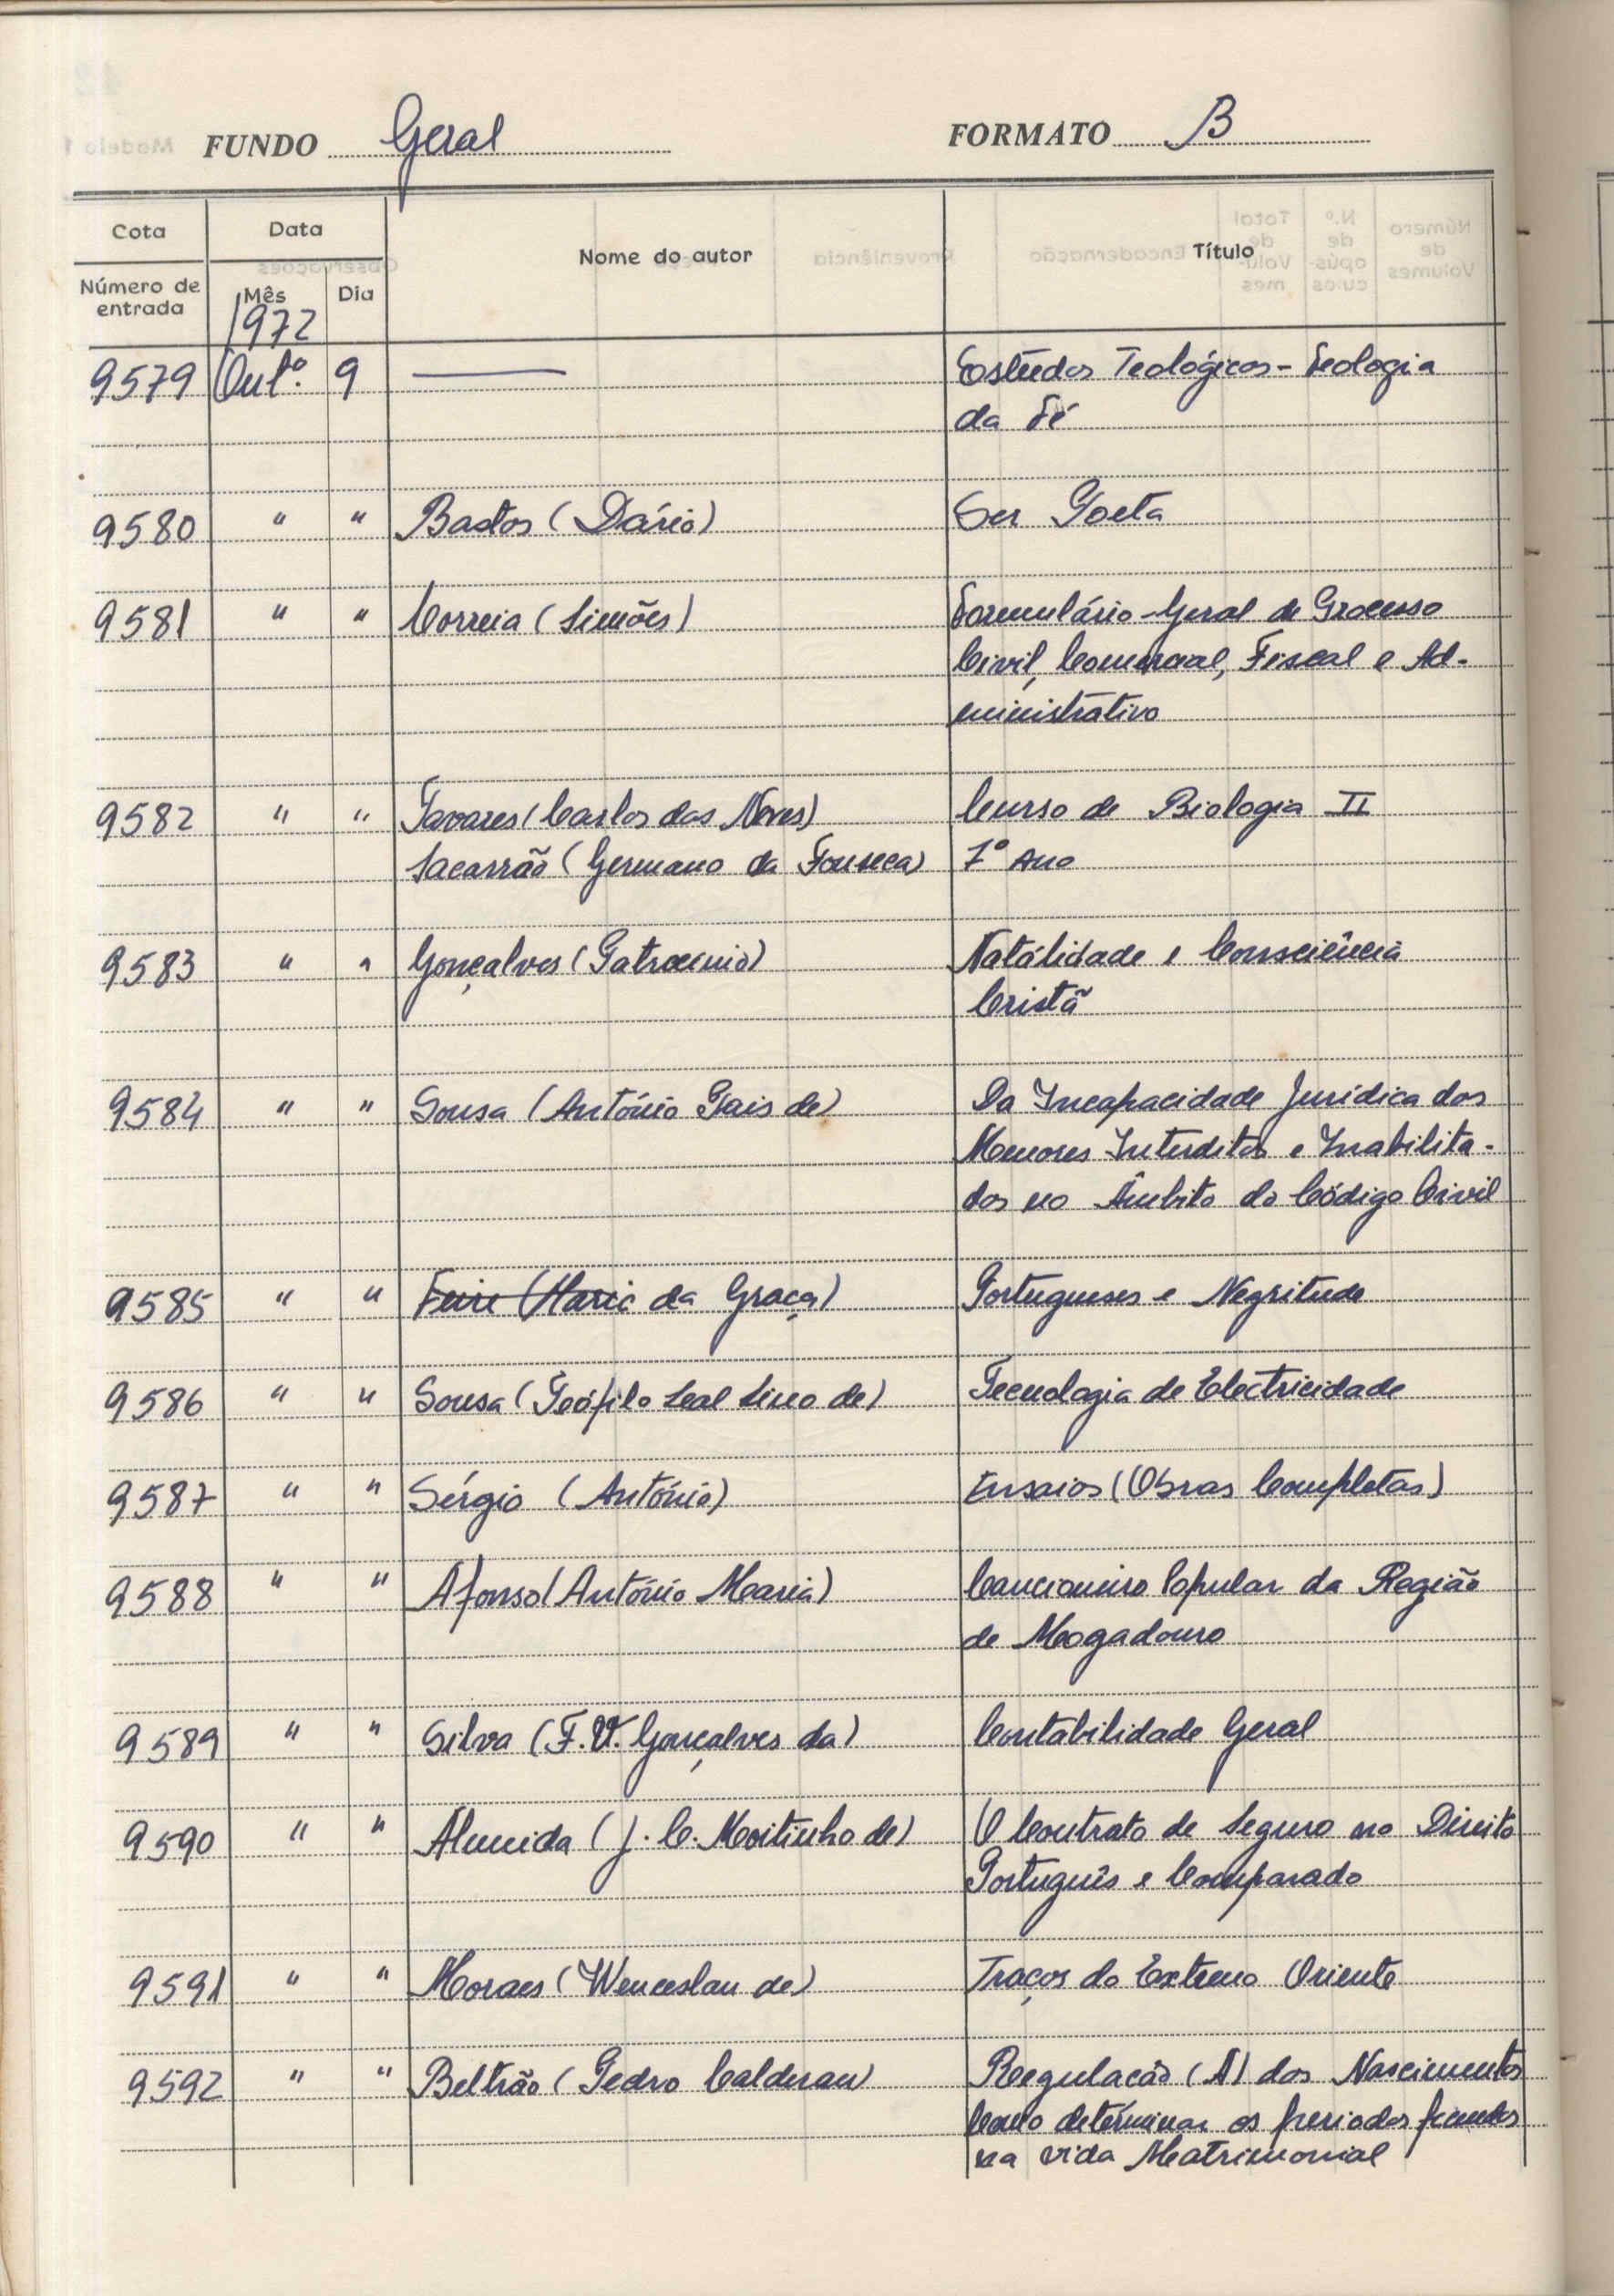 FUNDO Geral FORMATO B
Cota Data Nome do autor Título
Número de entrada Mês Dia
1972
9579 Outº. 9 — Estudos Teológicos - Teologia
da Fé
9580 " " Bastos (Dário) Ser Poeta
9581 " " Correia (Simões) Formulário-Geral de Processo
Civil, Comercial, Fiscal e Ad-
ministrativo
9582 " " Tavares (Carlos das Neves) Curso de Biologia II
Sacarrão (Germano da Fonseca) 7º Ano
9583 " " Gonçalves (Patrocinio) Natálidade e Consciência
Cristã
9584 " " Sousa (António Pais de) Da Incapacidade Jurídica dos
Menores Interditos e Inabilita-
dos no Âmbito do Código Civil
9585 " " Freire (Maria da Graça) Portugueses e Negritude
9586 " " Sousa (Teófilo Leal Lino de) Tecnologia de Electricidade
9587 " " Sérgio (António) Ensaios (Obras Completas)
9588 " " Afonso (António Maria) Cancioneiro Popular da Região
de Mogadouro
9589 " " Silva (F.V. Gonçalves da) Contabilidade Geral
9590 " " Almeida (J. C. Moitinho de) O Contrato de Seguro no Direito
Português e Comparado
9591 " " Moraes (Wenceslau de) Traços do Extremo Oriente
9592 " " Beltrão (Pedro Calderan) Regulacão (A) dos Nascimentos
Como determinar os periodos fecundos
na vida Matrimonial